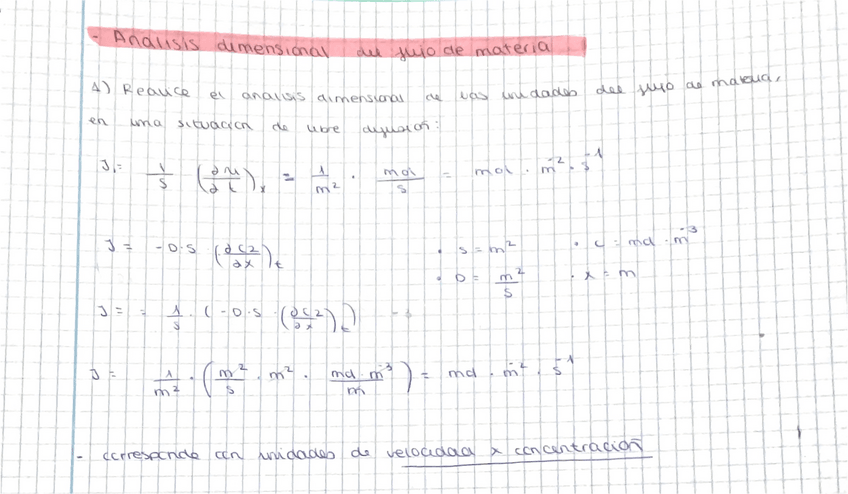 - Analisis dimensional del flujo de materia
1) Realice el analisis dimensional de las unidades del flujo de materia,
en una situacion de libre difusion:
J₁ = 1/S (∂n/∂t)ₓ = 1/m² · mol/s = mol · m⁻² · s⁻¹
J = -D·S (∂C2/∂x)ₜ · S = m² · C = mol · m⁻³
· D = m²/s · x = m
J = = 1/S · (-D·S · (∂C2/∂x)ₜ)
J = 1/m² · (m²/s · m² · mol·m⁻³/m) = mol · m⁻² · s⁻¹
- corresponde con unidades de velocidad x concentración